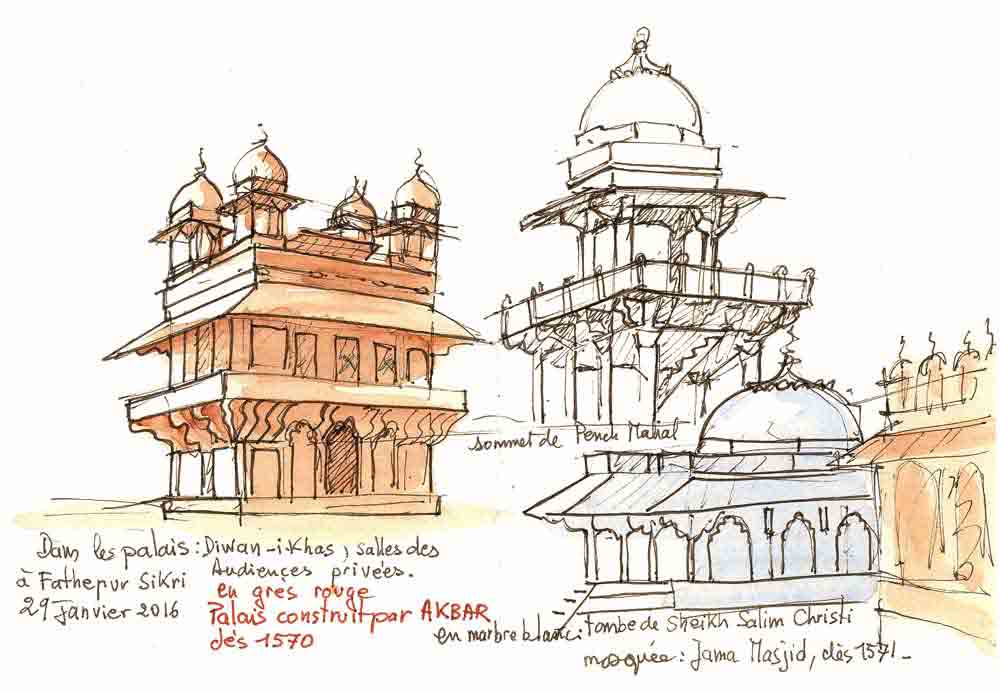 sommet de Pench Mahal
Dans les palais : Diwan-i-Khas, salles des
Audiences privées.
à Fathepur Sikri
29 Janvier 2016
en gres rouge
Palais construit par AKBAR
dès 1570
en marbre blanc : Tombe de Sheikh Salim Christi
mosquée : Jama Masjid, dès 1571-